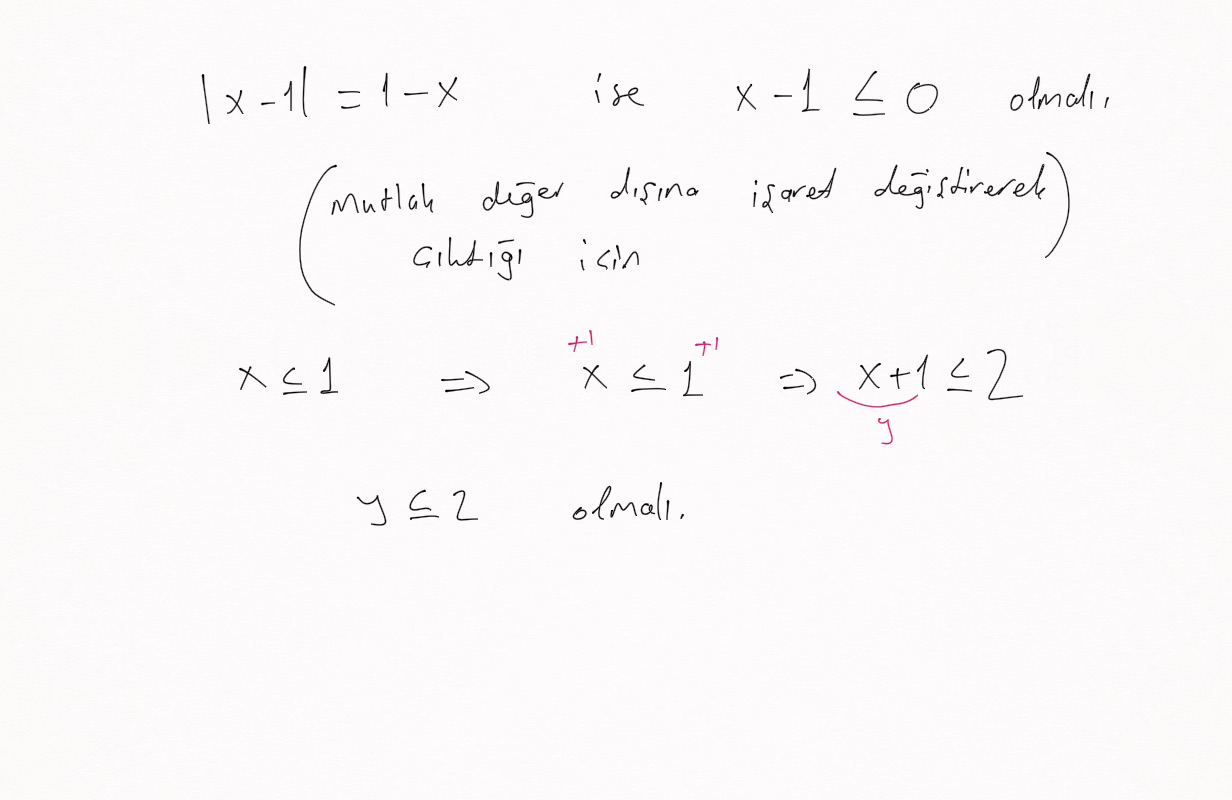 |x-1| = 1-x ise x-1 ≤ 0 olmalı.
(Mutlak değer dışına işaret değiştirerek
çıktığı için)
x ≤ 1 => +1 x ≤ 1 +1 => x+1 ≤ 2
y
y ≤ 2 olmalı.